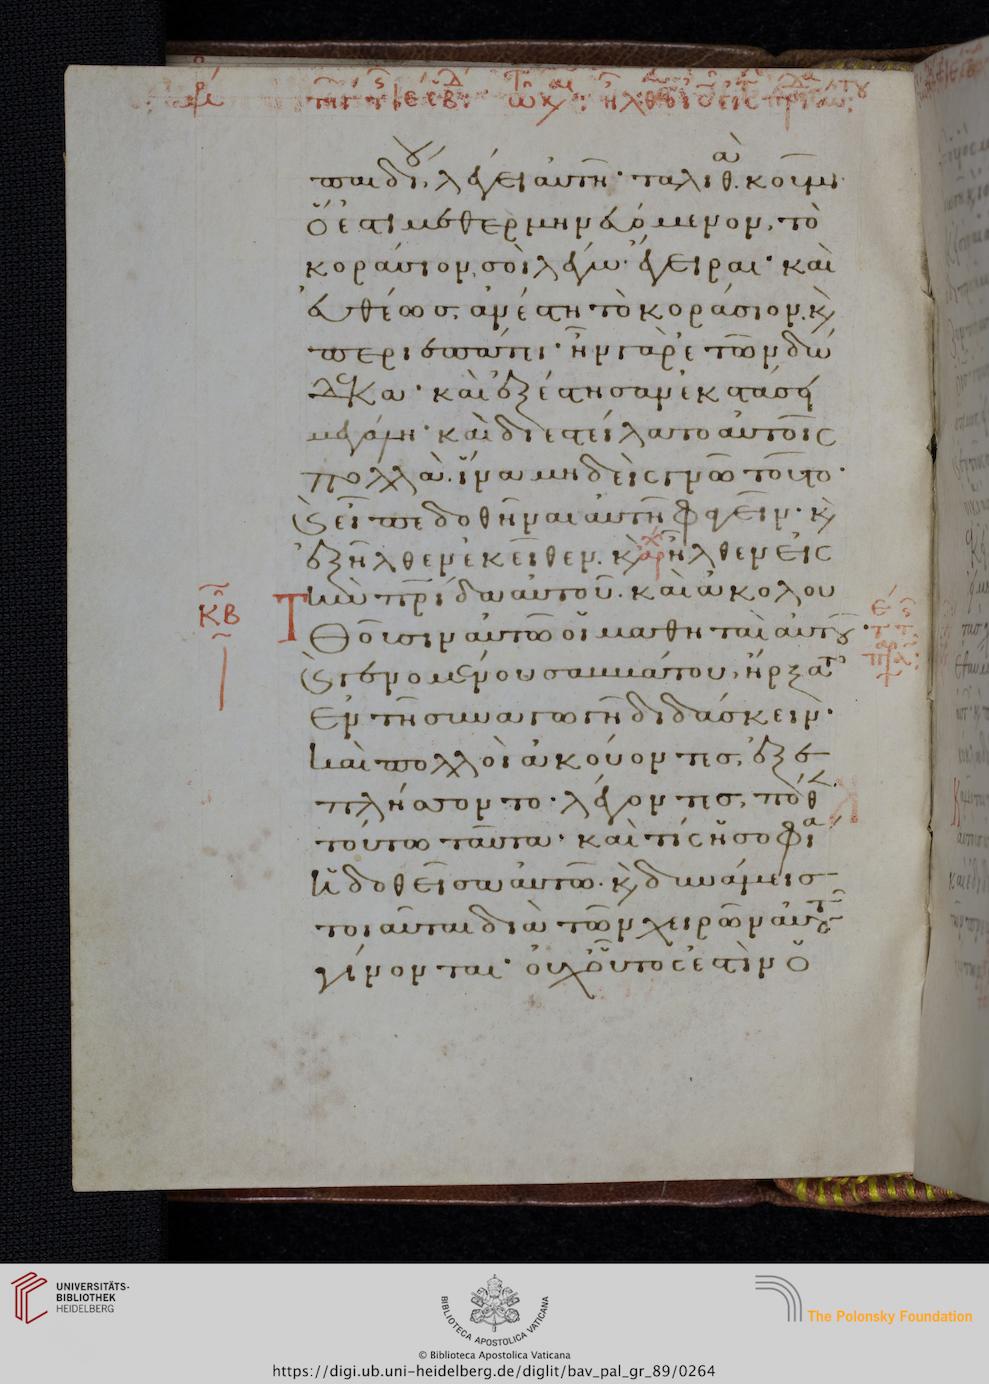 παιδίου, λέγει αὐτῆ· ταλιθὰ. κοῦμι·
ὅ ἐστι μεθερμηνευόμενον, τὸ
κοράσιον, σοὶ λέγω· ἔγειραι· καὶ
εὐθέως, ἀνέστη τὸ κοράσιον. κὶ
περιεπάτει· ἦν γὰρ ἐτῶν δώ
δεκα· καὶ ἐξέστησαν ἐκστάσει
μεγάλη· καὶ διεστείλατο αὐτοῖς
πολλὰ. ἵνα μηδεὶς γνῶ τοῦτο·
καὶ εἶπε δοθῆναι αὐτῆ φαγεῖν· κὶ
ἐξῆλθεν ἐκεῖθεν. κὶ ἦλθεν εἰς
τὴν πρίδα αὐτοῦ. καὶ ἀκολου
θοῦσιν αὐτῶ οἱ μαθηταὶ αὐτοῦ·
καὶ γενομένου σαββάτου, ἤρξατο
ἐν τῆ συναγωγῆ διδάσκειν·
καὶ πολλοὶ ἀκούοντες, ἐξε
πλήσσοντο· λέγοντες, πόθεν
τούτω ταῦτα· καὶ τίς ἡ σοφία
ἡ δοθεῖσα αὐτῶ. κὶ δυνάμεις
τοιαῦται διὰ τῶν χειρῶν αὐτοῦ
γίνονται· οὐχ οὗτός ἐστιν ὁ
κβ
UNIVERSITÄTS-
BIBLIOTHEK
HEIDELBERG
BIBLIOTECA APOSTOLICA VATICANA
The Polonsky Foundation
© Biblioteca Apostolica Vaticana
https://digi.ub.uni-heidelberg.de/diglit/bav_pal_gr_89/0264